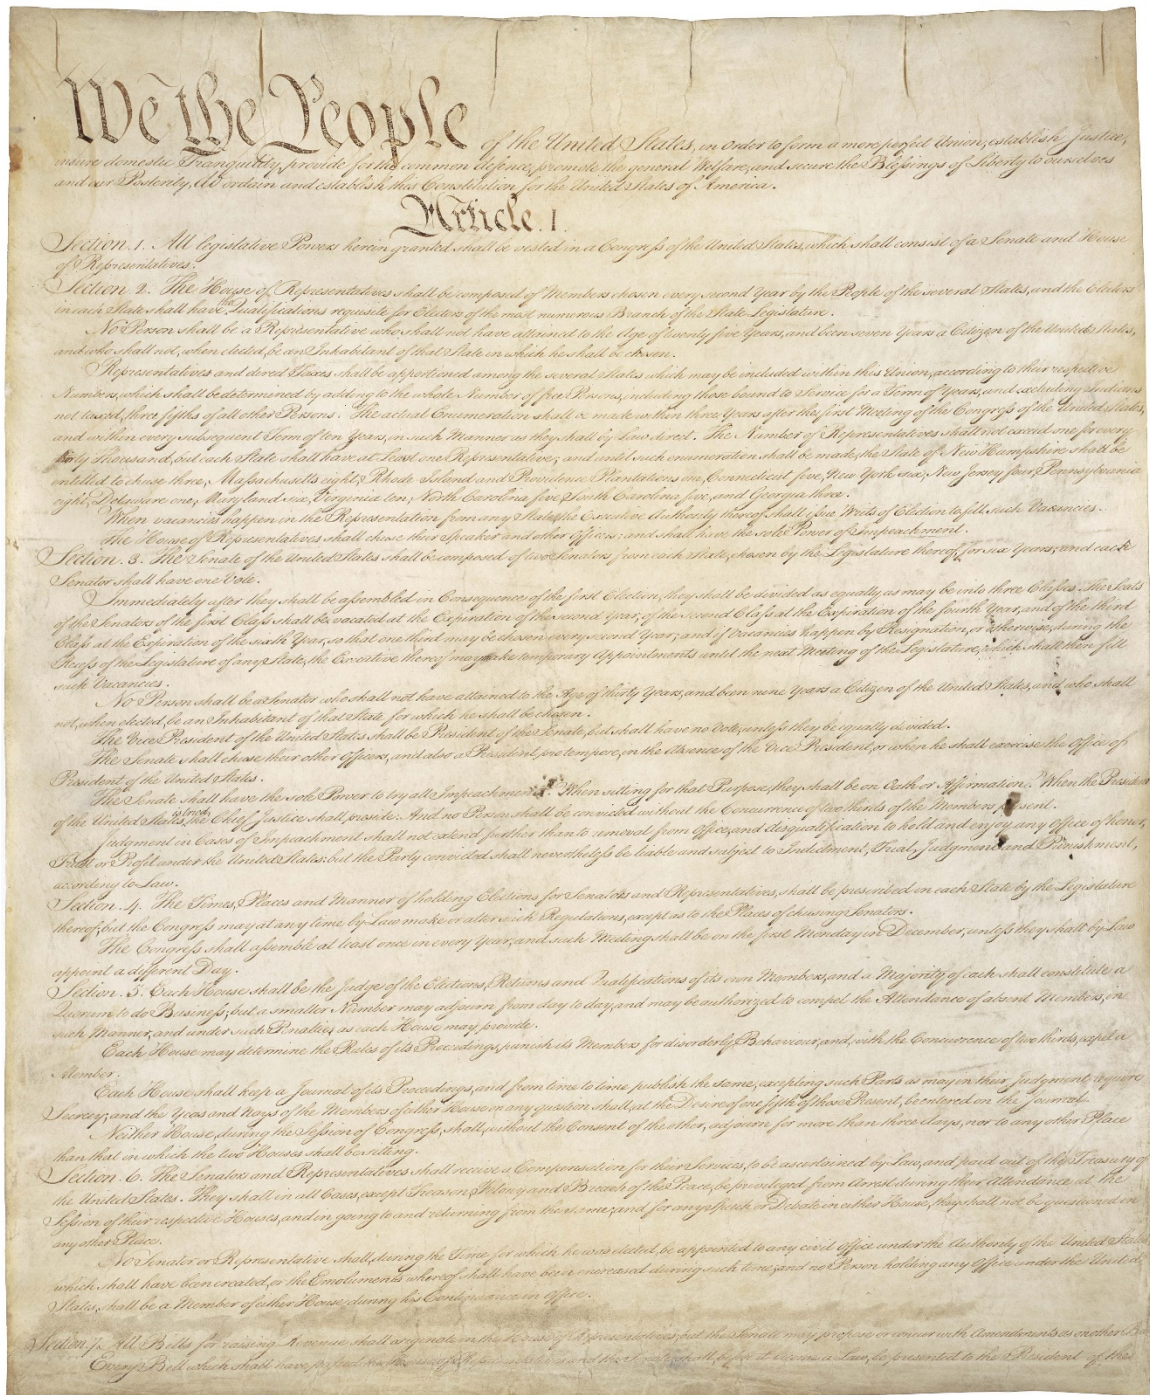 We the People of the United States, in Order to form a more perfect Union, establish Justice,
insure domestic Tranquility, provide for the common defence, promote the general Welfare, and secure the Blessings of Liberty to ourselves
and our Posterity, do ordain and establish this Constitution for the United States of America.
Article. I.
Section. 1. All legislative Powers herein granted shall be vested in a Congress of the United States, which shall consist of a Senate and House
of Representatives.
Section. 2. The House of Representatives shall be composed of Members chosen every second Year by the People of the several States, and the Electors
in each State shall have the Qualifications requisite for Electors of the most numerous Branch of the State Legislature.
No Person shall be a Representative who shall not have attained to the Age of twenty five Years, and been seven Years a Citizen of the United States,
and who shall not, when elected, be an Inhabitant of that State in which he shall be chosen.
Representatives and direct Taxes shall be apportioned among the several States which may be included within this Union, according to their respective
Numbers, which shall be determined by adding to the whole Number of free Persons, including those bound to Service for a Term of Years, and excluding Indians
not taxed, three fifths of all other Persons. The actual Enumeration shall be made within three Years after the first Meeting of the Congress of the United States,
and within every subsequent Term of ten Years, in such Manner as they shall by Law direct. The Number of Representatives shall not exceed one for every
thirty Thousand, but each State shall have at Least one Representative; and until such enumeration shall be made, the State of New Hampshire shall be
entitled to chuse three, Massachusetts eight, Rhode Island and Providence Plantations one, Connecticut five, New York six, New Jersey four, Pennsylvania
eight, Delaware one, Maryland six, Virginia ten, North Carolina five, South Carolina five, and Georgia three.
When vacancies happen in the Representation from any State, the Executive Authority thereof shall issue Writs of Election to fill such Vacancies.
The House of Representatives shall chuse their Speaker and other Officers; and shall have the sole Power of Impeachment.
Section. 3. The Senate of the United States shall be composed of two Senators from each State, chosen by the Legislature thereof, for six Years; and each
Senator shall have one Vote.
Immediately after they shall be assembled in Consequence of the first Election, they shall be divided as equally as may be into three Classes. The Seats
of the Senators of the first Class shall be vacated at the Expiration of the second Year, of the second Class at the Expiration of the fourth Year, and of the third
Class at the Expiration of the sixth Year, so that one third may be chosen every second Year; and if Vacancies happen by Resignation, or otherwise, during the
Recess of the Legislature of any State, the Executive thereof may make temporary Appointments until the next Meeting of the Legislature, which shall then fill
such Vacancies.
No Person shall be a Senator who shall not have attained to the Age of thirty Years, and been nine Years a Citizen of the United States, and who shall
not, when elected, be an Inhabitant of that State for which he shall be chosen.
The Vice President of the United States shall be President of the Senate, but shall have no Vote, unless they be equally divided.
The Senate shall chuse their other Officers, and also a President pro tempore, in the Absence of the Vice President, or when he shall exercise the Office of
President of the United States.
The Senate shall have the sole Power to try all Impeachments. When sitting for that Purpose, they shall be on Oath or Affirmation. When the President
of the United States is tried, the Chief Justice shall preside: And no Person shall be convicted without the Concurrence of two thirds of the Members present.
Judgment in Cases of Impeachment shall not extend further than to removal from Office, and disqualification to hold and enjoy any Office of honor,
Trust or Profit under the United States: but the Party convicted shall nevertheless be liable and subject to Indictment, Trial, Judgment and Punishment,
according to Law.
Section. 4. The Times, Places and Manner of holding Elections for Senators and Representatives, shall be prescribed in each State by the Legislature
thereof; but the Congress may at any time by Law make or alter such Regulations, except as to the Places of chusing Senators.
The Congress shall assemble at least once in every Year, and such Meeting shall be on the first Monday in December, unless they shall by Law
appoint a different Day.
Section. 5. Each House shall be the Judge of the Elections, Returns and Qualifications of its own Members, and a Majority of each shall constitute a
Quorum to do Business; but a smaller Number may adjourn from day to day, and may be authorized to compel the Attendance of absent Members, in
such Manner, and under such Penalties as each House may provide.
Each House may determine the Rules of its Proceedings, punish its Members for disorderly Behaviour, and, with the Concurrence of two thirds, expel a
Member.
Each House shall keep a Journal of its Proceedings, and from time to time publish the same, excepting such Parts as may in their Judgment require
Secrecy; and the Yeas and Nays of the Members of either House on any question shall, at the Desire of one fifth of those Present, be entered on the Journal.
Neither House, during the Session of Congress, shall, without the Consent of the other, adjourn for more than three days, nor to any other Place
than that in which the two Houses shall be sitting.
Section. 6. The Senators and Representatives shall receive a Compensation for their Services, to be ascertained by Law, and paid out of the Treasury of
the United States. They shall in all Cases, except Treason, Felony and Breach of the Peace, be privileged from Arrest during their Attendance at the
Session of their respective Houses, and in going to and returning from the same; and for any Speech or Debate in either House, they shall not be questioned in
any other Place.
No Senator or Representative shall, during the Time for which he was elected, be appointed to any civil Office under the Authority of the United States,
which shall have been created, or the Emoluments whereof shall have been encreased during such time; and no Person holding any Office under the United
States, shall be a Member of either House during his Continuance in Office.
Section. 7. All Bills for raising Revenue shall originate in the House of Representatives; but the Senate may propose or concur with Amendments as on other Bills.
Every Bill which shall have passed the House of Representatives and the Senate, shall, before it become a Law, be presented to the President of the